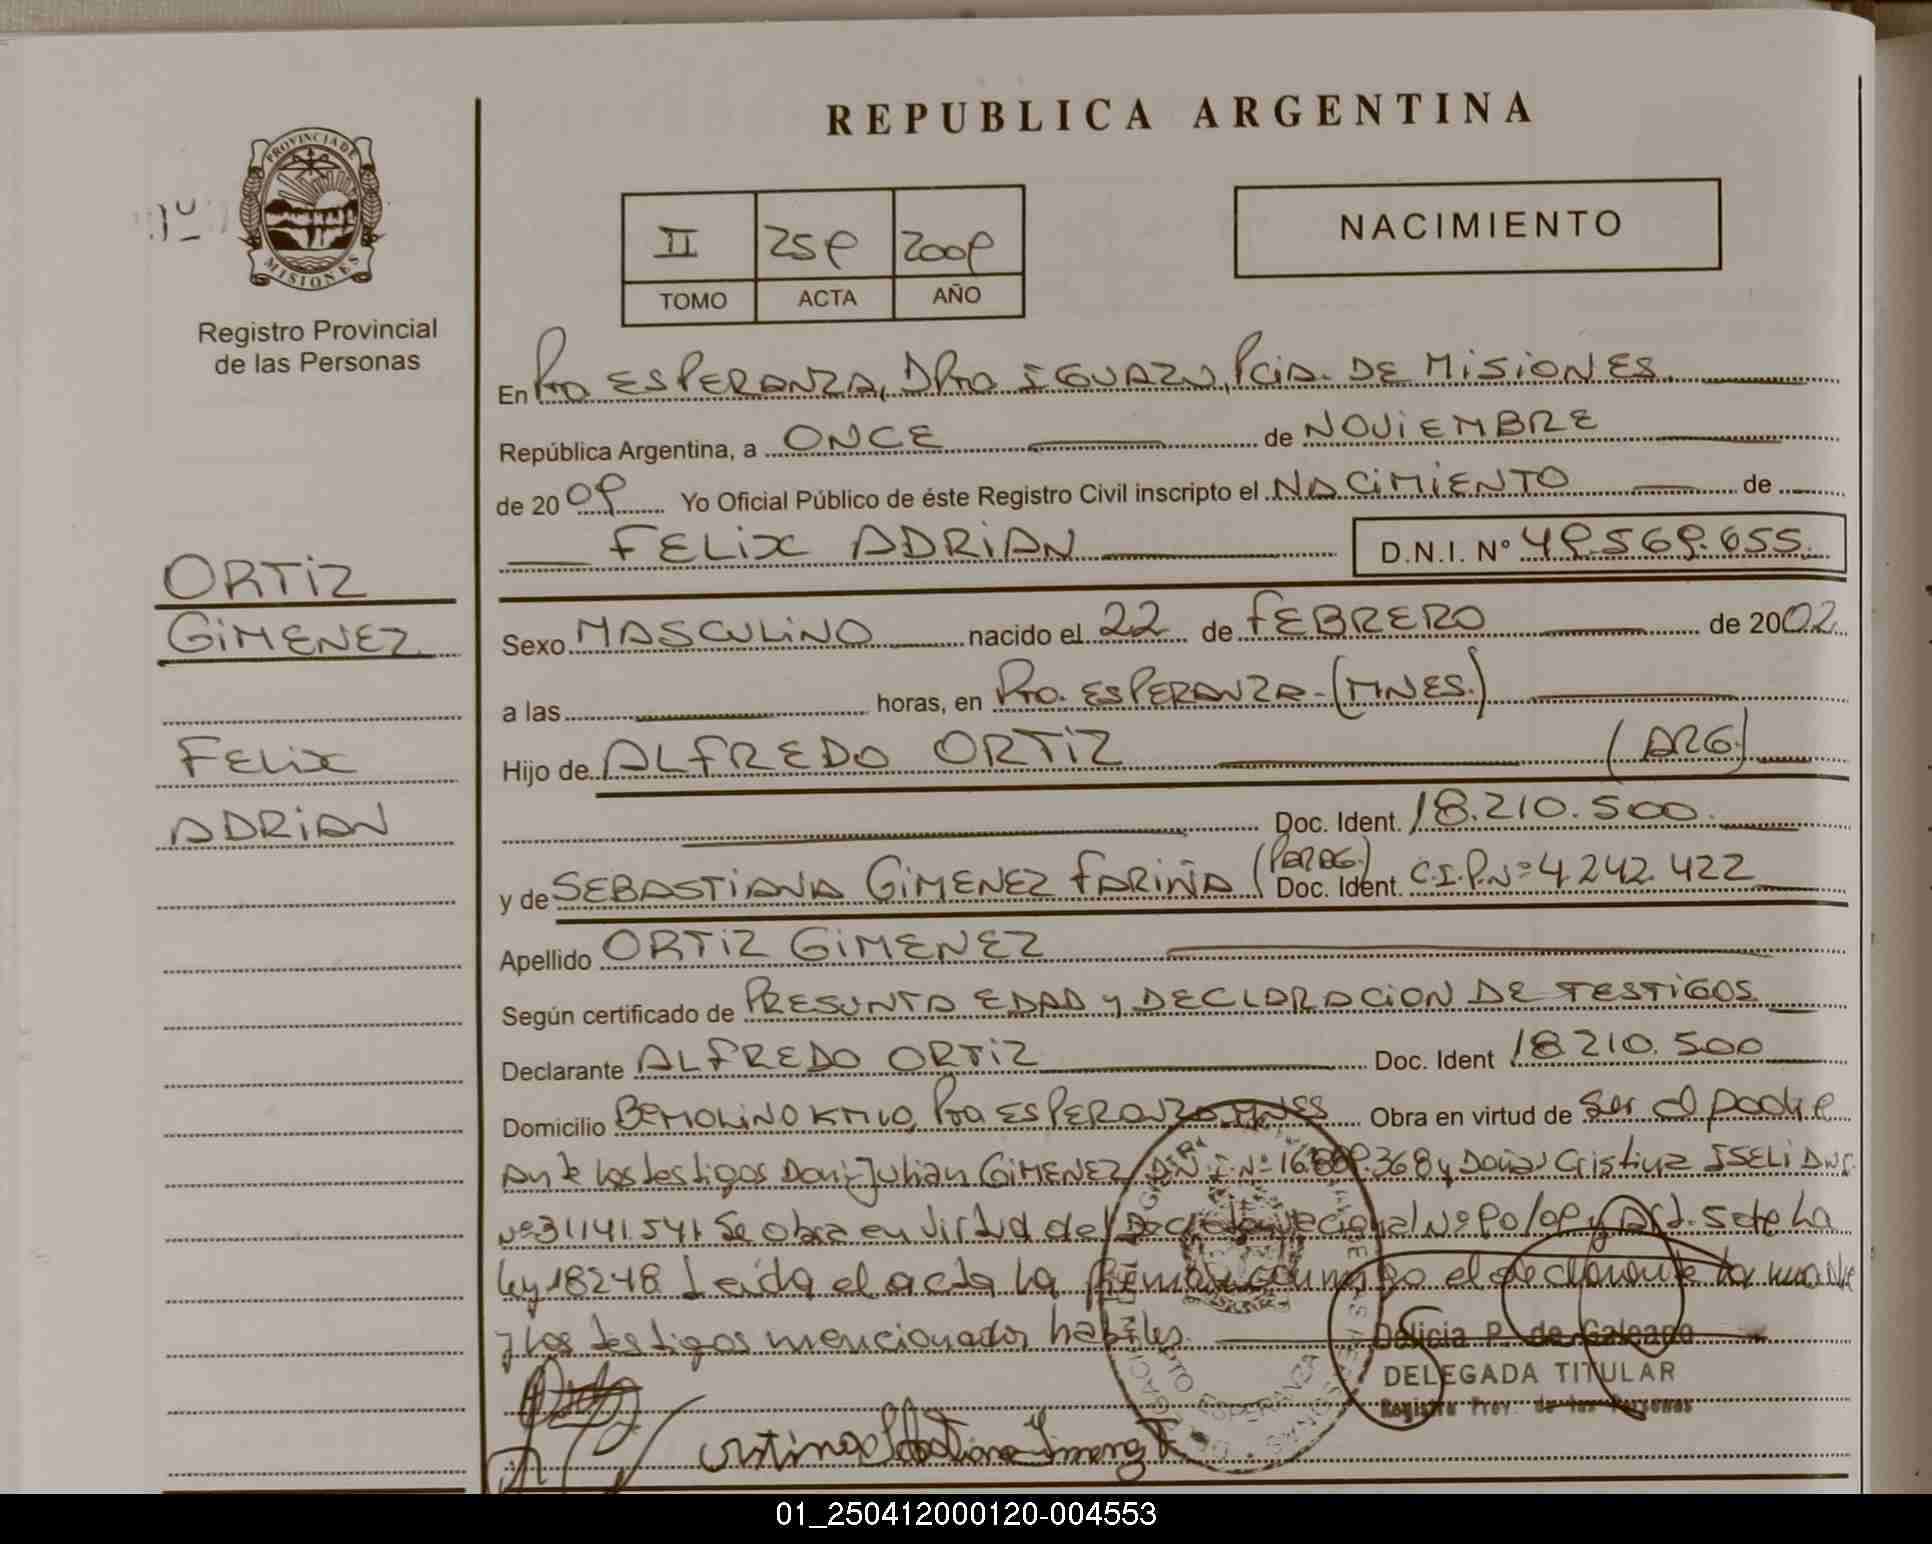 REPUBLICA ARGENTINA
PROVINCIA DE
MISIONES
Registro Provincial
de las Personas
NACIMIENTO
II 259 2009
TOMO ACTA AÑO
En Pto ESPERANZA, DPto IGUAZU, PCiA. DE MISIONES.
República Argentina, a ONCE de NOVIEMBRE
de 2009 Yo Oficial Público de éste Registro Civil inscripto el NACIMIENTO de
FELIX ADRIAN D.N.I. N° 49.569.655.
ORTIZ
GIMENEZ
FELIX
ADRIAN
Sexo MASCULINO nacido el 22 de FEBRERO de 2002
a las horas, en Pto. ESPERANZA - (MNES.)
Hijo de ALFREDO ORTIZ (ARG.)
Doc. Ident. 18.210.500.
y de SEBASTIANA GIMENEZ FARIÑA (PARAG.) Doc. Ident. C.I.P.Nº 4.242.422
Apellido ORTIZ GIMENEZ
Según certificado de PRESUNTA EDAD y DECLARACION DE TESTIGOS
Declarante ALFREDO ORTIZ Doc. Ident 18.210.500
Domicilio Bº MOLINO KM 10, Pto ESPERANZA MNES Obra en virtud de Ser el padre
Ante los testigos Don: Julian GIMENEZ D.N.I. Nº 16. .368 y Doña: Cristina ISELI DNI
Nº 31.141.541 Se obra en virtud del Decreto Nacional Nº 90/09 y Art. 5 de la
Ley 18248 Leída el acta la firman conmigo el declarante la madre
y los testigos mencionados hábiles.
Delicia P. de Galeano
DELEGADA TITULAR
Registro Prov. de las Personas
01_250412000120-004553